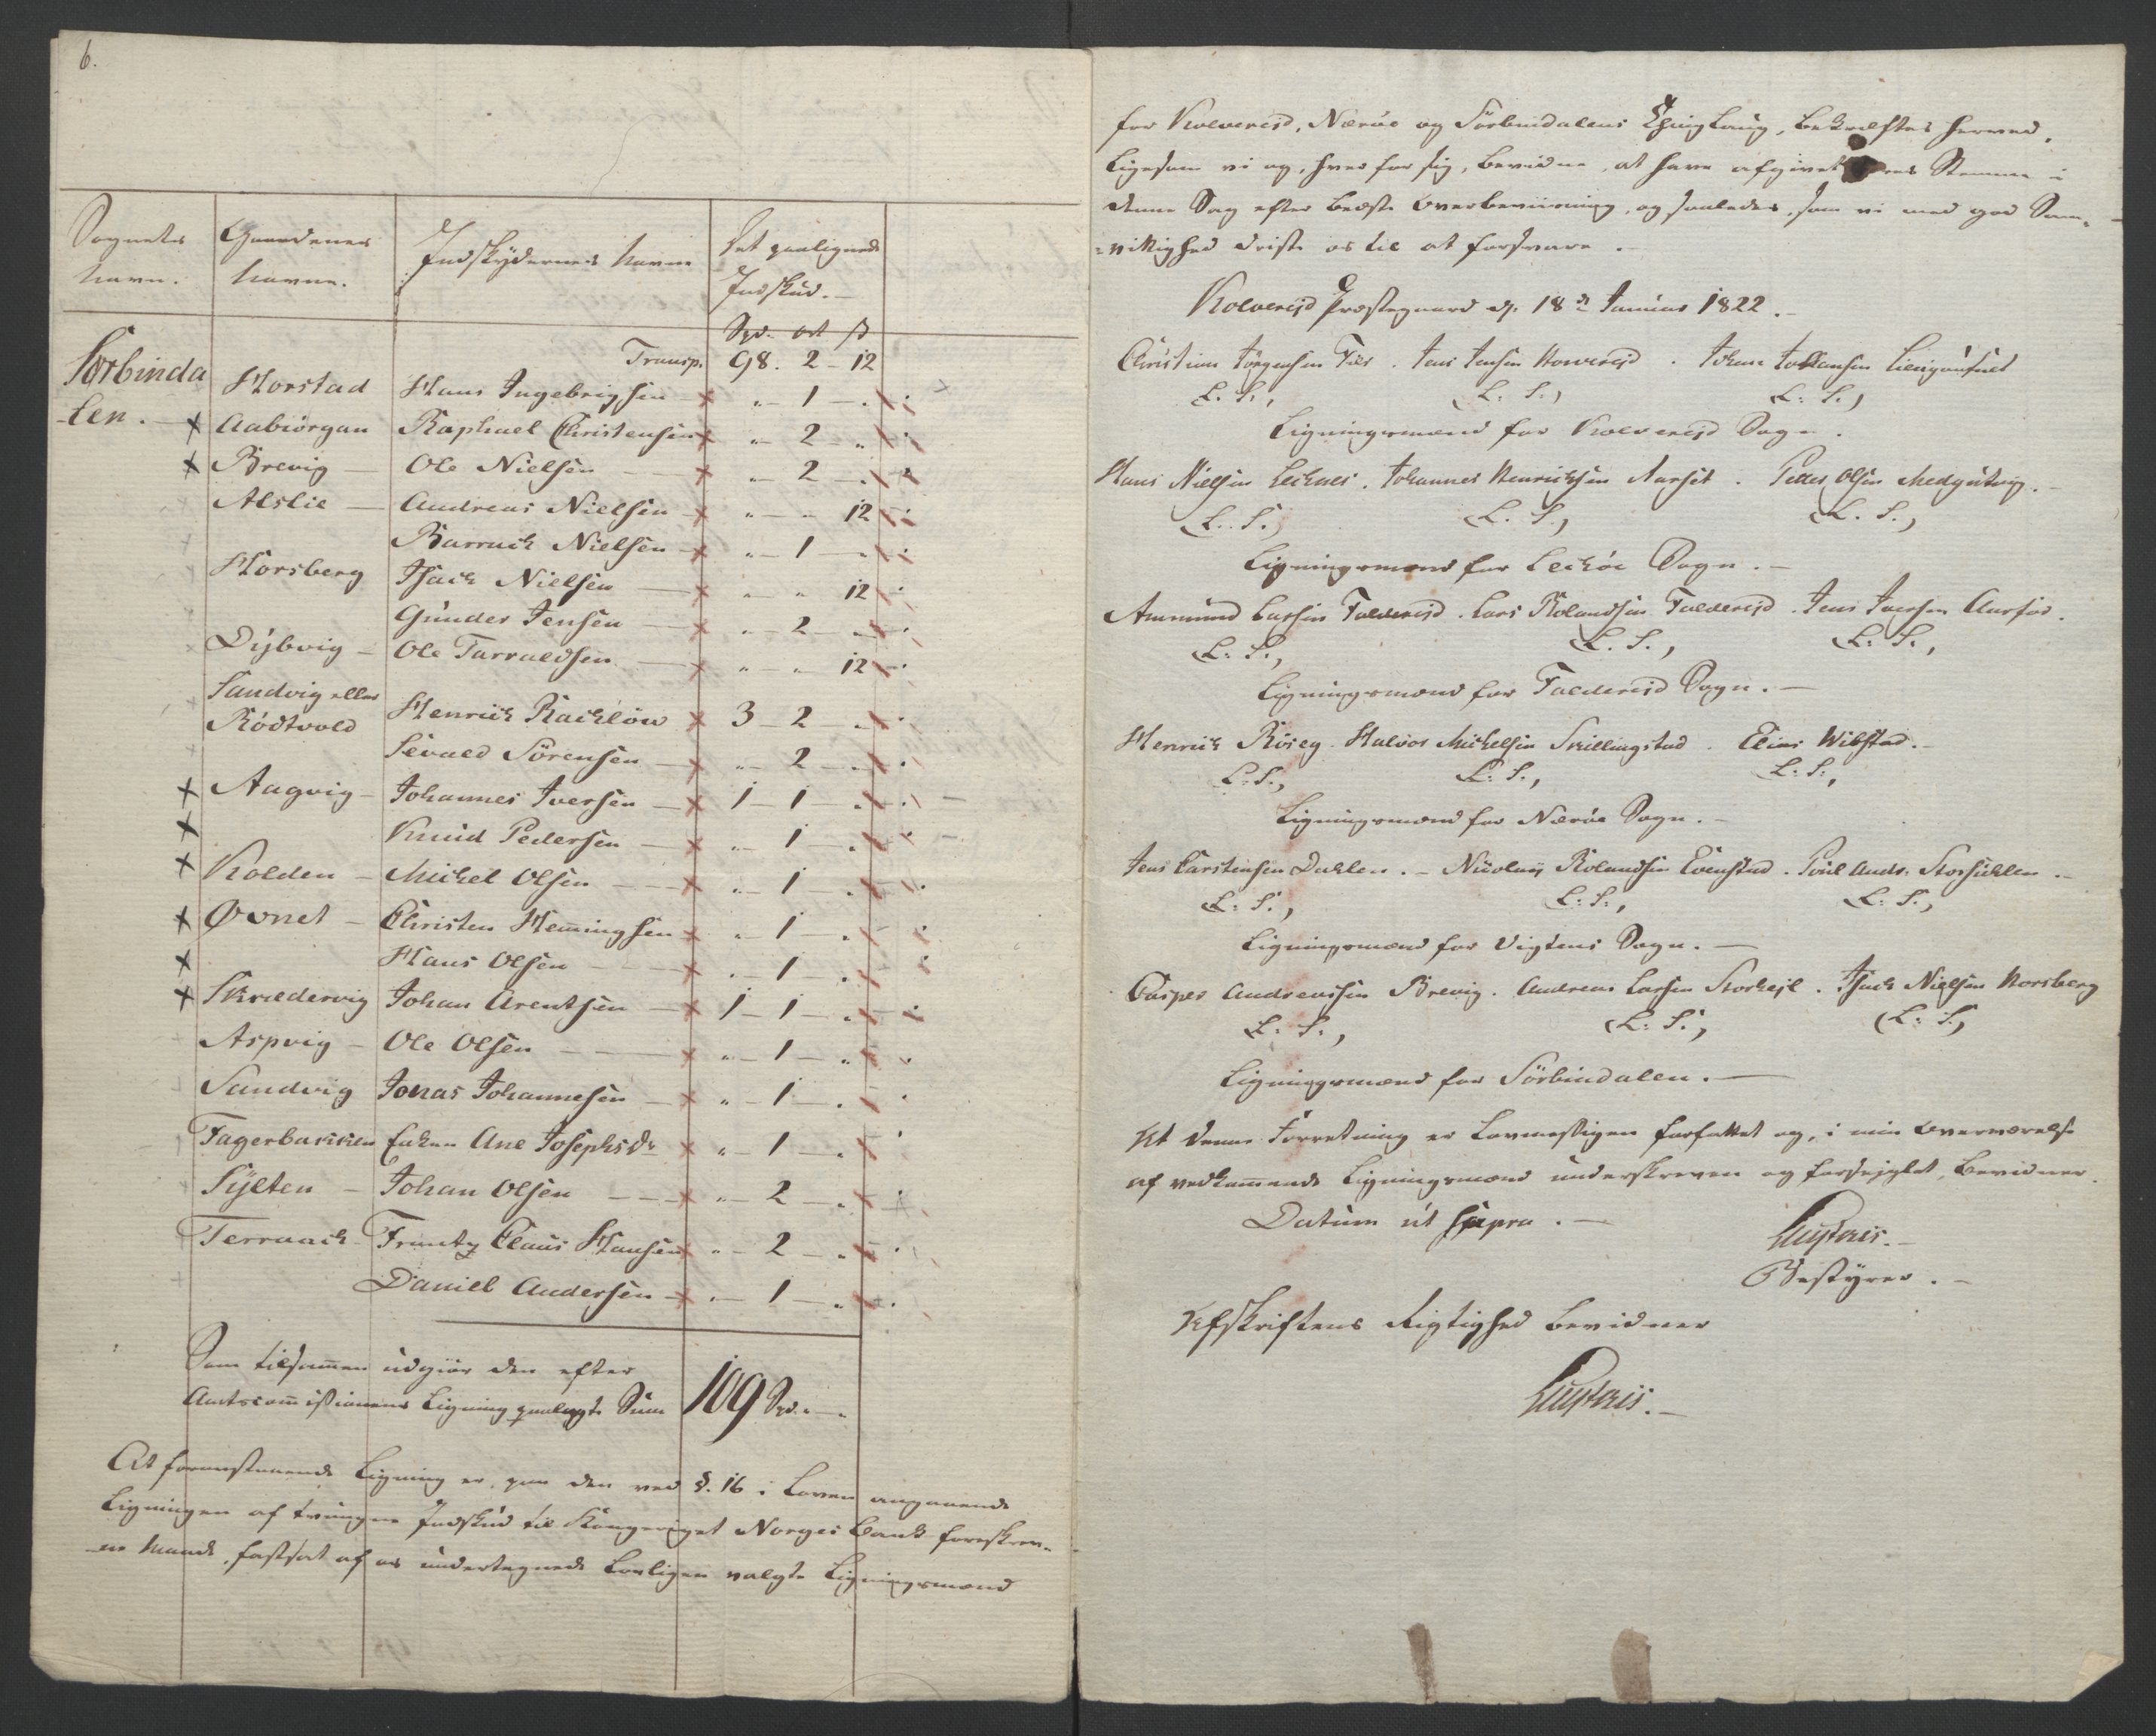 6.
Sognets Navn. Gaardenes Navne. Indskydernes Navne Det paalignede Indskud.
Spd. ort ß
Transp. 98. 2 - 12
Sørbindalen. Horstad Hans Ingebrigsen " - 1 - "
Aabiørgan Raphael Christensen " - 2 - "
Brevig - Ole Nielsen " - 2 - "
Alslie - Andreas Nielsen " - " 12
Barrach Nielsen " - 1 - "
Horsberg Isach Nielsen " - " 12
Gunder Jensen " - 2 - "
Dybvig - Ole Tarraldsen " - " 12
Sandvig eller
Rødtvold Henrich Rachløw 3 - 2 - "
Sevald Sørensen " - 2 - "
Aagvig - Johannes Iversen 1 - 1 - "
Knud Pedersen " - 1 - "
Kolden - Michel Olsen " - 1 - "
Øvnet - Christen Hem̄ingsen " - 1 - "
Hans Olsen " - 1 - "
Skrædervig Johan Arentsen 1 - 1 - "
Aspvig - Ole Olsen " - 1 - "
Sandvig Jonas Johannesen " - 1 - "
Fagerbakken Enken Ane Josephsdr " - 1 - "
Sylten - Johan Olsen " - 2 - "
Terraack Frantz Claus Hansen " - 2 - "
Daniel Andersen " - 1 - "
Som tilsam̄en udgiør den efter
Amtscom̄issionens Ligning paalagte Sum 109 Spd. -
At foranstaaende Ligning er, paa den ved §. 16 i Loven angaaende
Ligningen af tvungne Indskud til Kongeriget Norges Bank foreskrev-
-ne Maade, fastsat af os undertegnede lovligen valgte Ligningsmænd
for Kolvereid, Nærøe og Sørbindalens Thinglaug, bekræftes herved,
ligesom vi og, hver for sig, bevidne, at have afgivet vores Stemme i
denne Sag efter bedste Overbeviisning, og saaledes, som vi med god Sam-
=vittighed driste os til at forsvare. -
Kolvereid Præstegaard d. 18de Januar 1822. -
Christian Jørgensen Fier. Jens Jensen Horvereid. Johan Johansen
L. S., (L. S.) (L. S.)
Ligningsmænd for Kolvereid Sogn.
Hans Nielsen Leknes. Johannes Henrichsen Aarset. Peder Olsen Medgutvig. -
(L. S.) (L. S.) (L. S.)
Ligningsmænd for Lekøe Sogn. -
Ammund Larsen Foldereid. Lars Rolandsen Foldereid. Jens Iversen Aarfor.
(L. S., (L. S., (L. S.,
Ligningsmænd for Foldereid Sogn. -
Henrich Røseg. Halvor Michelsen Skillingstad. Elias Wibstad. -
L. S., (L. S., L. S.,
Ligningsmænd for Nærøe Sogn. -
Jens Carstensen Dahlen. - Nicolay Rolandsen Evenstad. Poul Andr. Storsuhlen. -
(L. S., (L. S., (L. S.,
Ligningsmænd for Vigtens Sogn. -
Casper Andreassen Brevig. Andreas Larsen Storhejl. Isach Nielsen Horsberg
(L. S., (L. S., (L. S.,
Ligningsmænd for Sørbindalen. -
At denne Forretning er lovmæssigen forfattet og, i min Overværelse
af vedkom̄ende Ligningsmænd underskreven og forseiglet, bevidner.
Datum ut supra. -
Bestyrer. -
Afskriftens Rigtighed bevidner